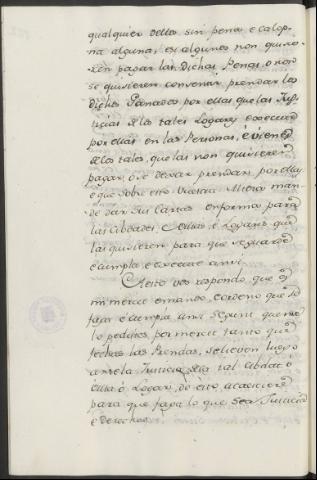 qualquier dellos sin pena e calop-
na alguna, e si algunos non quisie-
ren pagar las Dichas Penas, o non
se quisieren convenir prendar los
dichos Ganados por ellas que las Jus-
ticias de los tales Logares executen
por ellas en las Personas, é vienes
de los tales, que las non quisieren
pagar, o se dexar prendar por ellas
e que sobre esto Vuestra Alteza man-
de dar sus Cartas en forma para
las Cibdades, Villas, e Logares que
las quisieren para que se guarde
e cumpla e execute ansi.
A esto vos respondo que es
mi merced e mando, e ordeno que se
faga é cumpla ansi segunt que me
lo pedistes por merced tanto que
fechas las Prendas, se lieven luego
ante la Justicia de la tal Cibdat ó
Villa ó Logar, do esto acaesciere
para que faga lo que sea Justicia
e derecho.